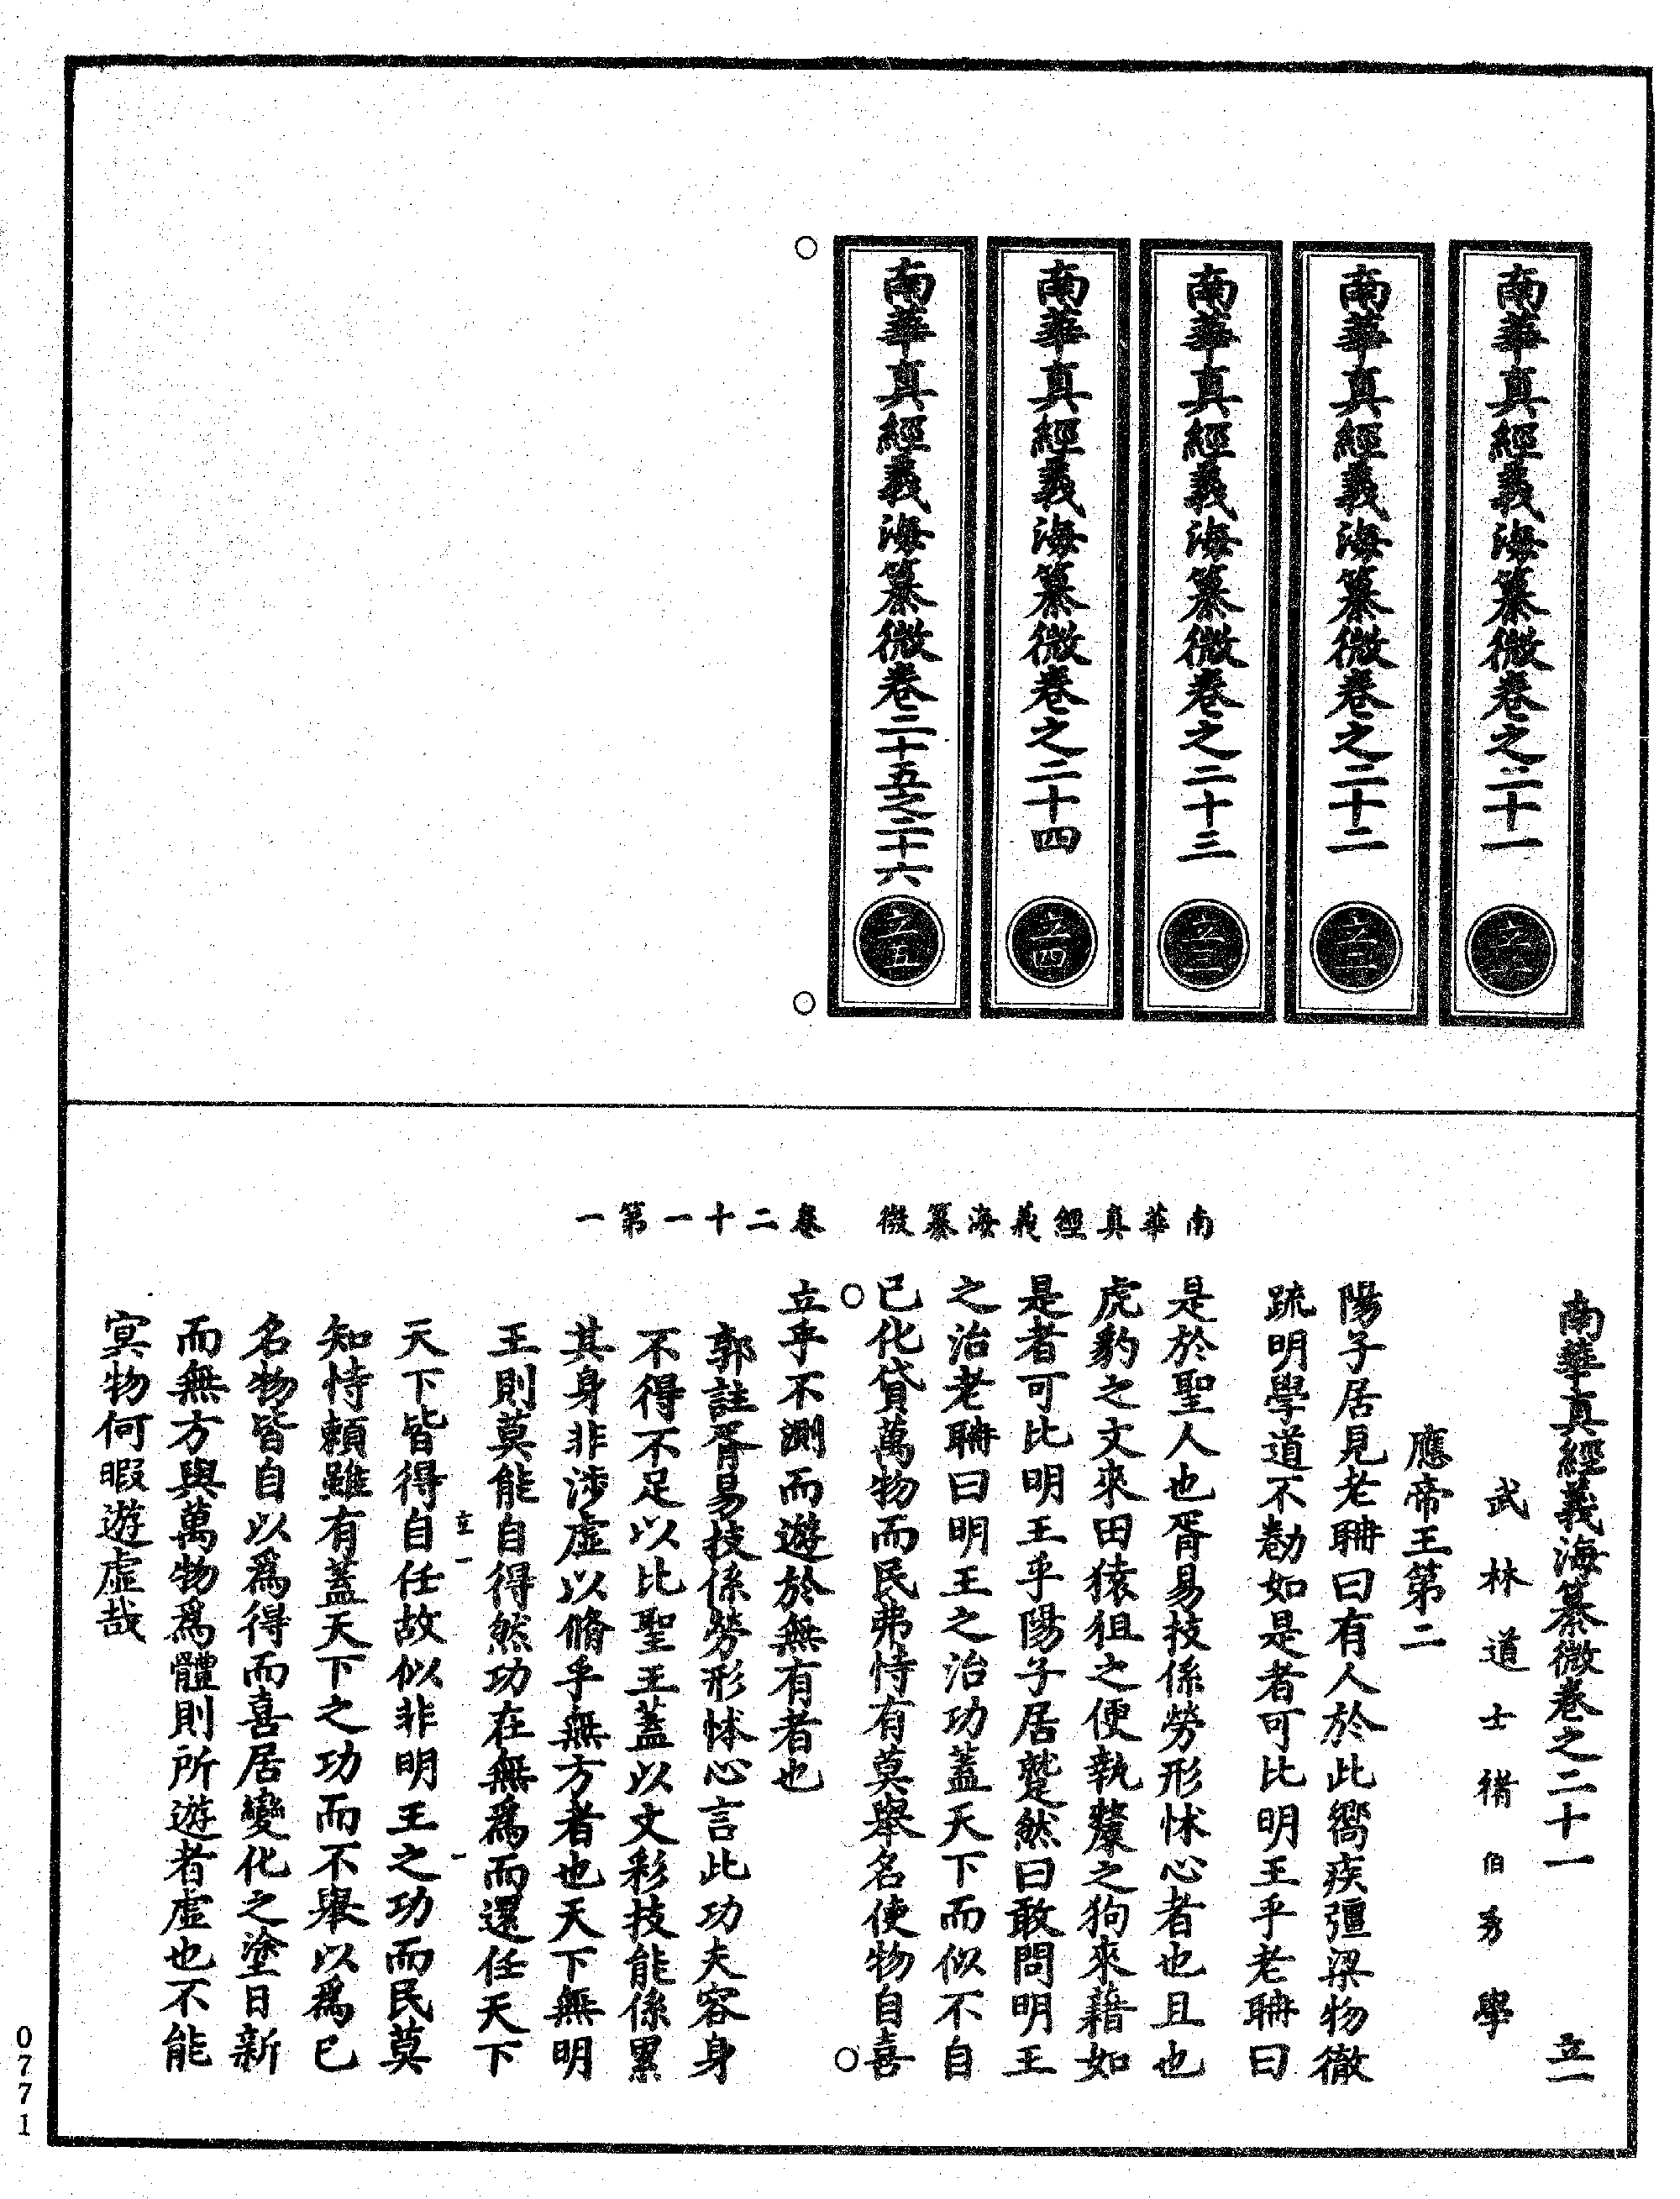 南華真經義海纂微卷之二十一 立一
南華真經義海纂微卷之二十二 立二
南華真經義海纂微卷之二十三 立三
南華真經義海纂微卷之二十四 立四
南華真經義海纂微卷二十五之二十六 立五
南華真經義海纂微 卷二十一第一
南華真經義海纂微卷之二十一 立一
武林道士褚伯秀學
應帝王第二
陽子居見老聃曰有人於此嚮疾彊梁物徹
疏明學道不勌如是者可比明王乎老聃曰
是於聖人也胥易技係勞形怵心者也且也
虎豹之文來田猿狙之便執斄之狗來藉如
是者可比明王乎陽子居蹵然曰敢問明王
之治老聃曰明王之治功蓋天下而似不自
已化貸萬物而民弗恃有莫舉名使物自喜
立乎不測而遊於無有者也
郭註胥易技係勞形怵心言此功夫容身
不得不足以比聖王蓋以文彩技能係累
其身非涉虛以脩乎無方者也天下無明
王則莫能自得然功在無爲而還任天下
立一 一
天下皆得自任故似非明王之功而民莫
知恃賴雖有蓋天下之功而不舉以爲已
名物皆自以爲得而喜居變化之塗日新
而無方與萬物爲體則所遊者虛也不能
冥物何暇遊虛哉
0771